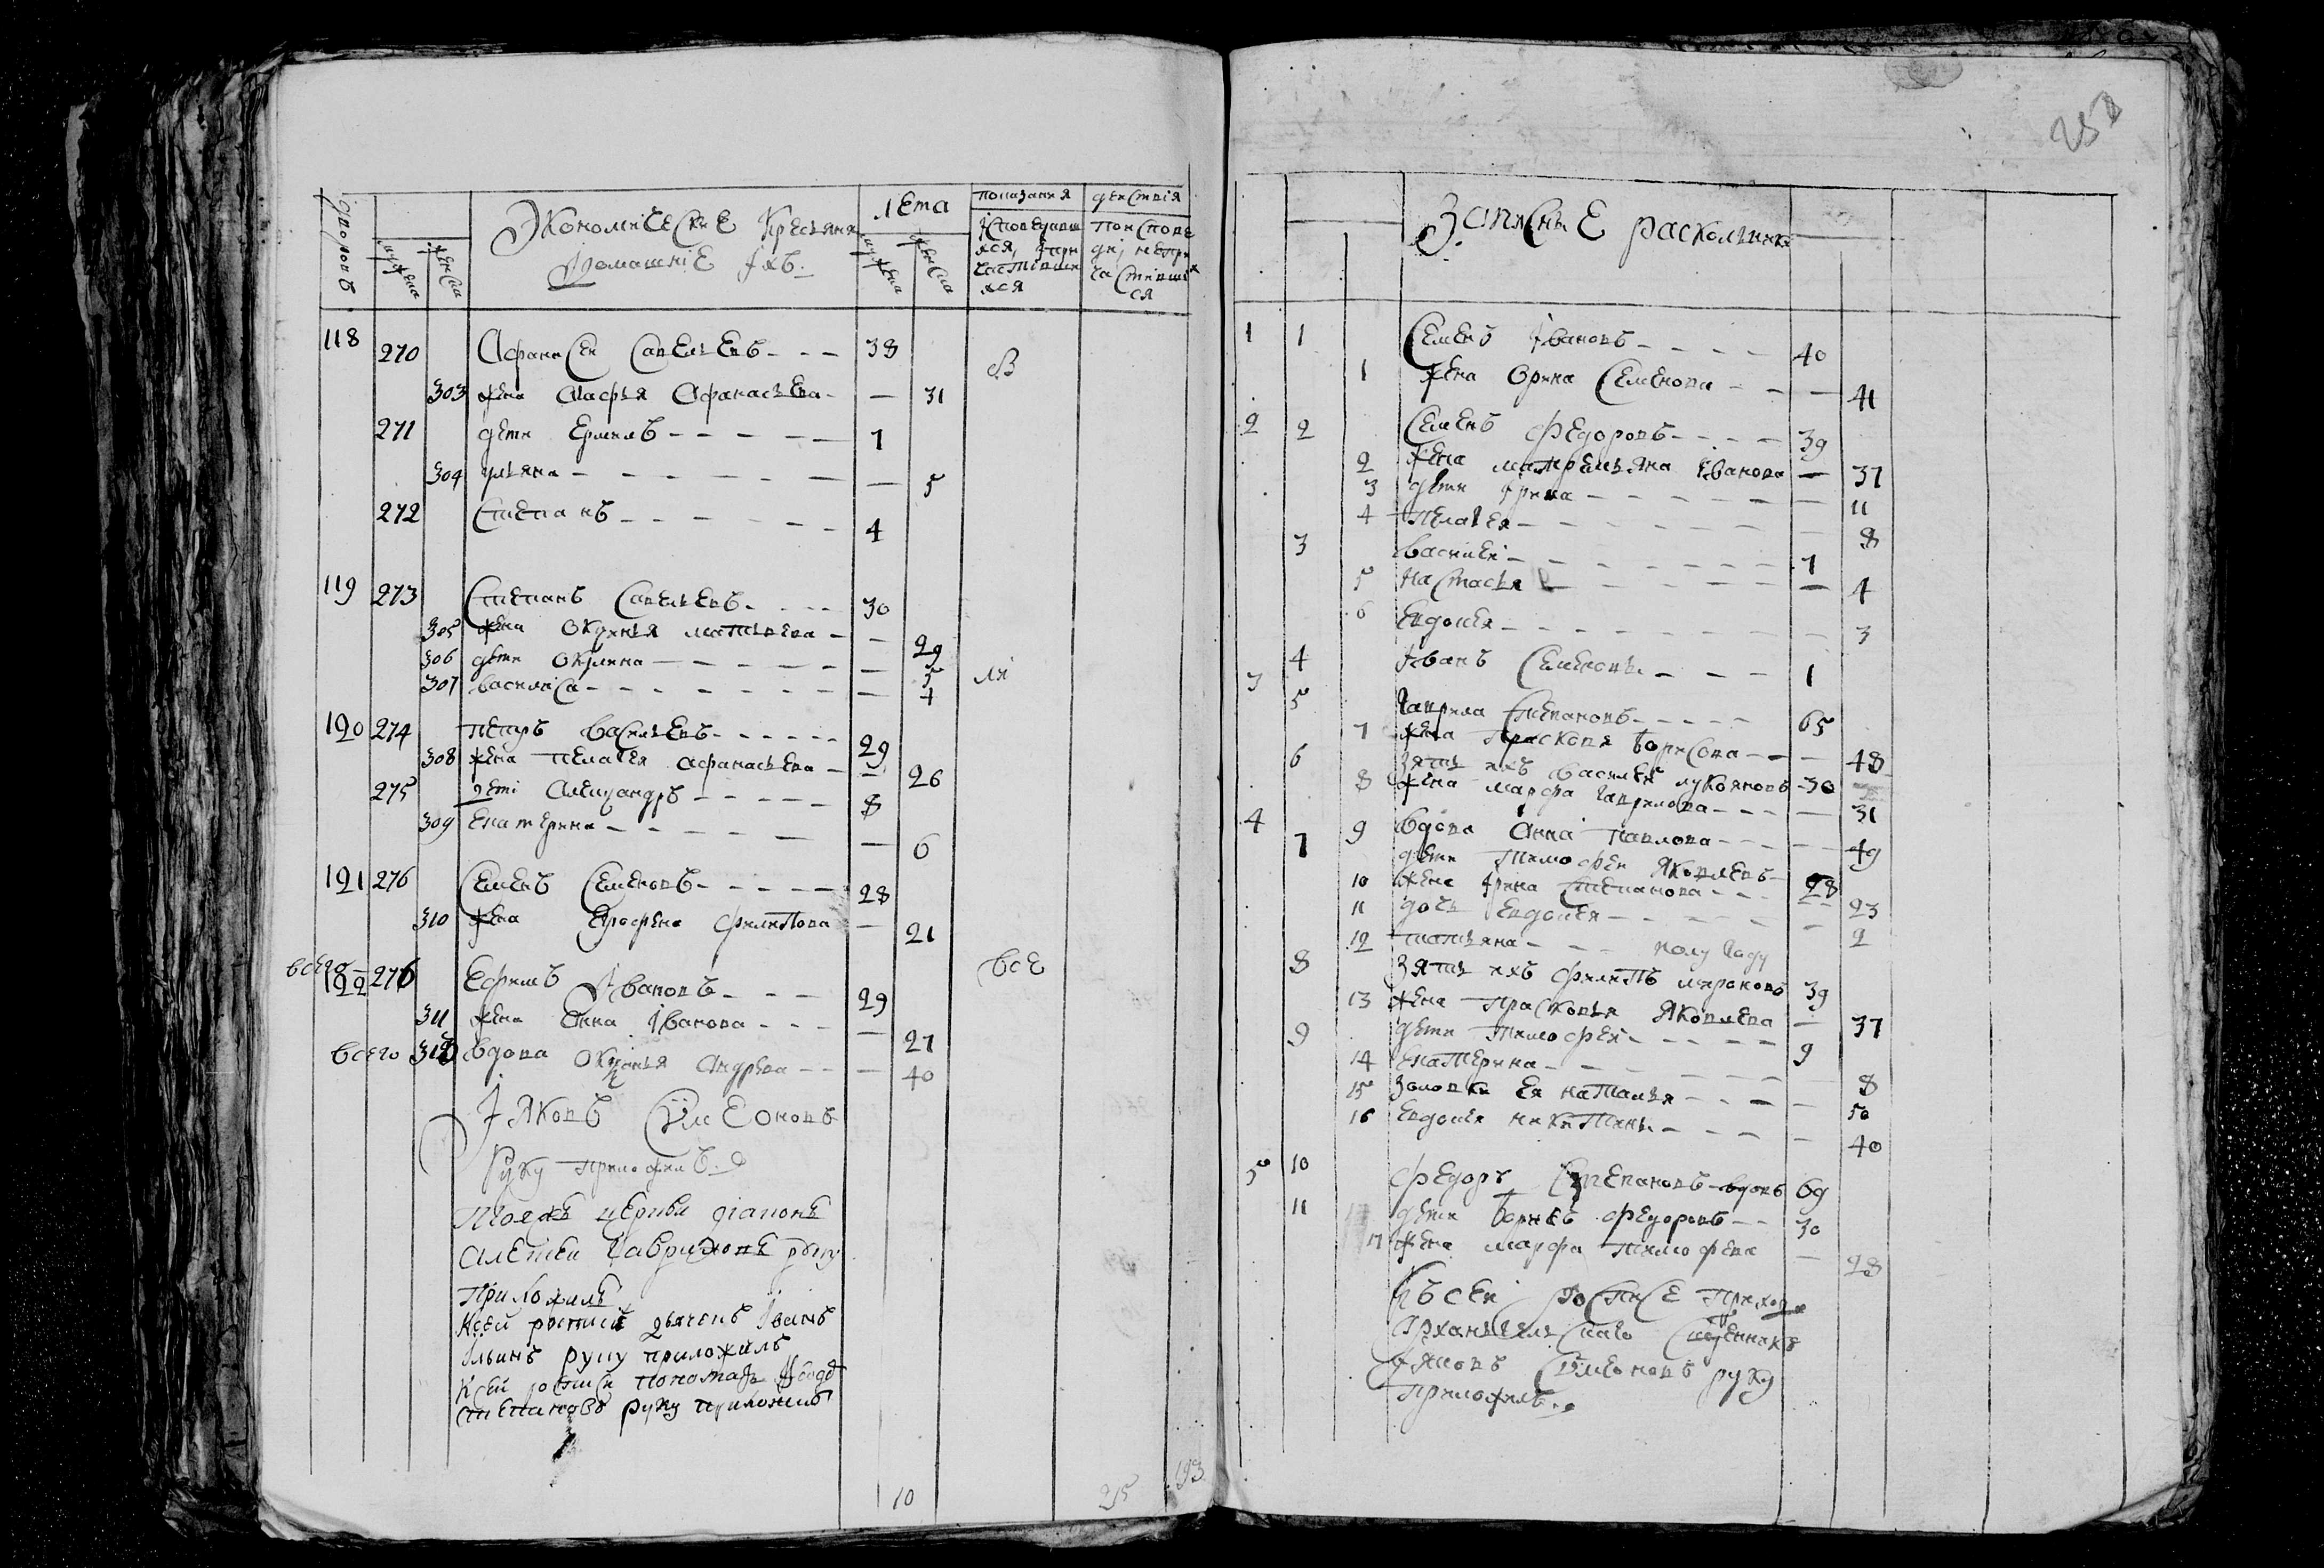 дворовъ
мужеска
женска
Экономические крестьяня
домашние ихъ
лета
мужеска
женска
показания
действия
исповедавши
хся, и при
частивши
хся
по исповѣ
ди, не при
частивши
ся
118 270 Афанасеи Савельевъ 38
303 жена Марфья Афанасьева — 31
271 дети Ермилъ 7
304 ульяна — 5
272 Степанъ 4
119 273 Степанъ Савельевъ 30
305 жена матвеева — 29
306 дети Окулина — 5
307 василиса — 4
ли
120 274 петръ васильевъ 29
308 жена пелагея афанасьева — 26
275 дети Александръ 8
309 Екатерина — 6
121 276 Семенъ Семеновъ 28
310 жена филипова — 21
всего
122 276 Ефимъ Ивановъ 29
все
311 жена Анна Иванова — 27
всего 312 вдова Андрева — 40
Iяковъ Симеоновъ
Руку приложилъ
тоеяжъ церкви дiаконъ
Алексеи Гавриловъ руку
приложилъ
К сей росписи дьячекъ Iванъ
Iльинъ руку приложилъ
К сей росписи пономарь
степановъ руку приложилъ
10 25 193
Записные расколники
1 1 Семенъ Iвановъ 40
1 жена Орина Семенова — 41
2 2 Семенъ Федоровъ 39
2 жена Iванова — 37
3 дети Iрина — 11
4 Пелагея 8
3 василеи 7
5 Настасья — 4
6 Евдокея — 3
4 Iванъ Семеновъ 1
3 5 Гаврила Степановъ 65
7 жена Прасковя Борисова — 48
6 зять ихъ василей лукояновъ 30
8 жена марфа Гаврилова — 31
4 9 вдова Анна павлова — 49
7 дети тимофеи Яковлевъ 28
10 жена Iрина Степанова — 23
11 дочь Евдокея — 2
12 татьяна полу году
8 зять ихъ филипъ мироновъ 39
13 жена прасковья Яковлева — 37
9 дети тимофеи 9
14 Екатерина — 8
15 золовки Ея наталья — 50
16 Евдокея никитины — 40
5 10 Федоръ Степановъ вдовъ 69
11 дети Борисъ Федоровъ 30
17 жена марфа тимофева — 28
Къ сеи росписе
Архангельскаго Священникъ
Iяковъ Симеоновъ руку
приложилъ